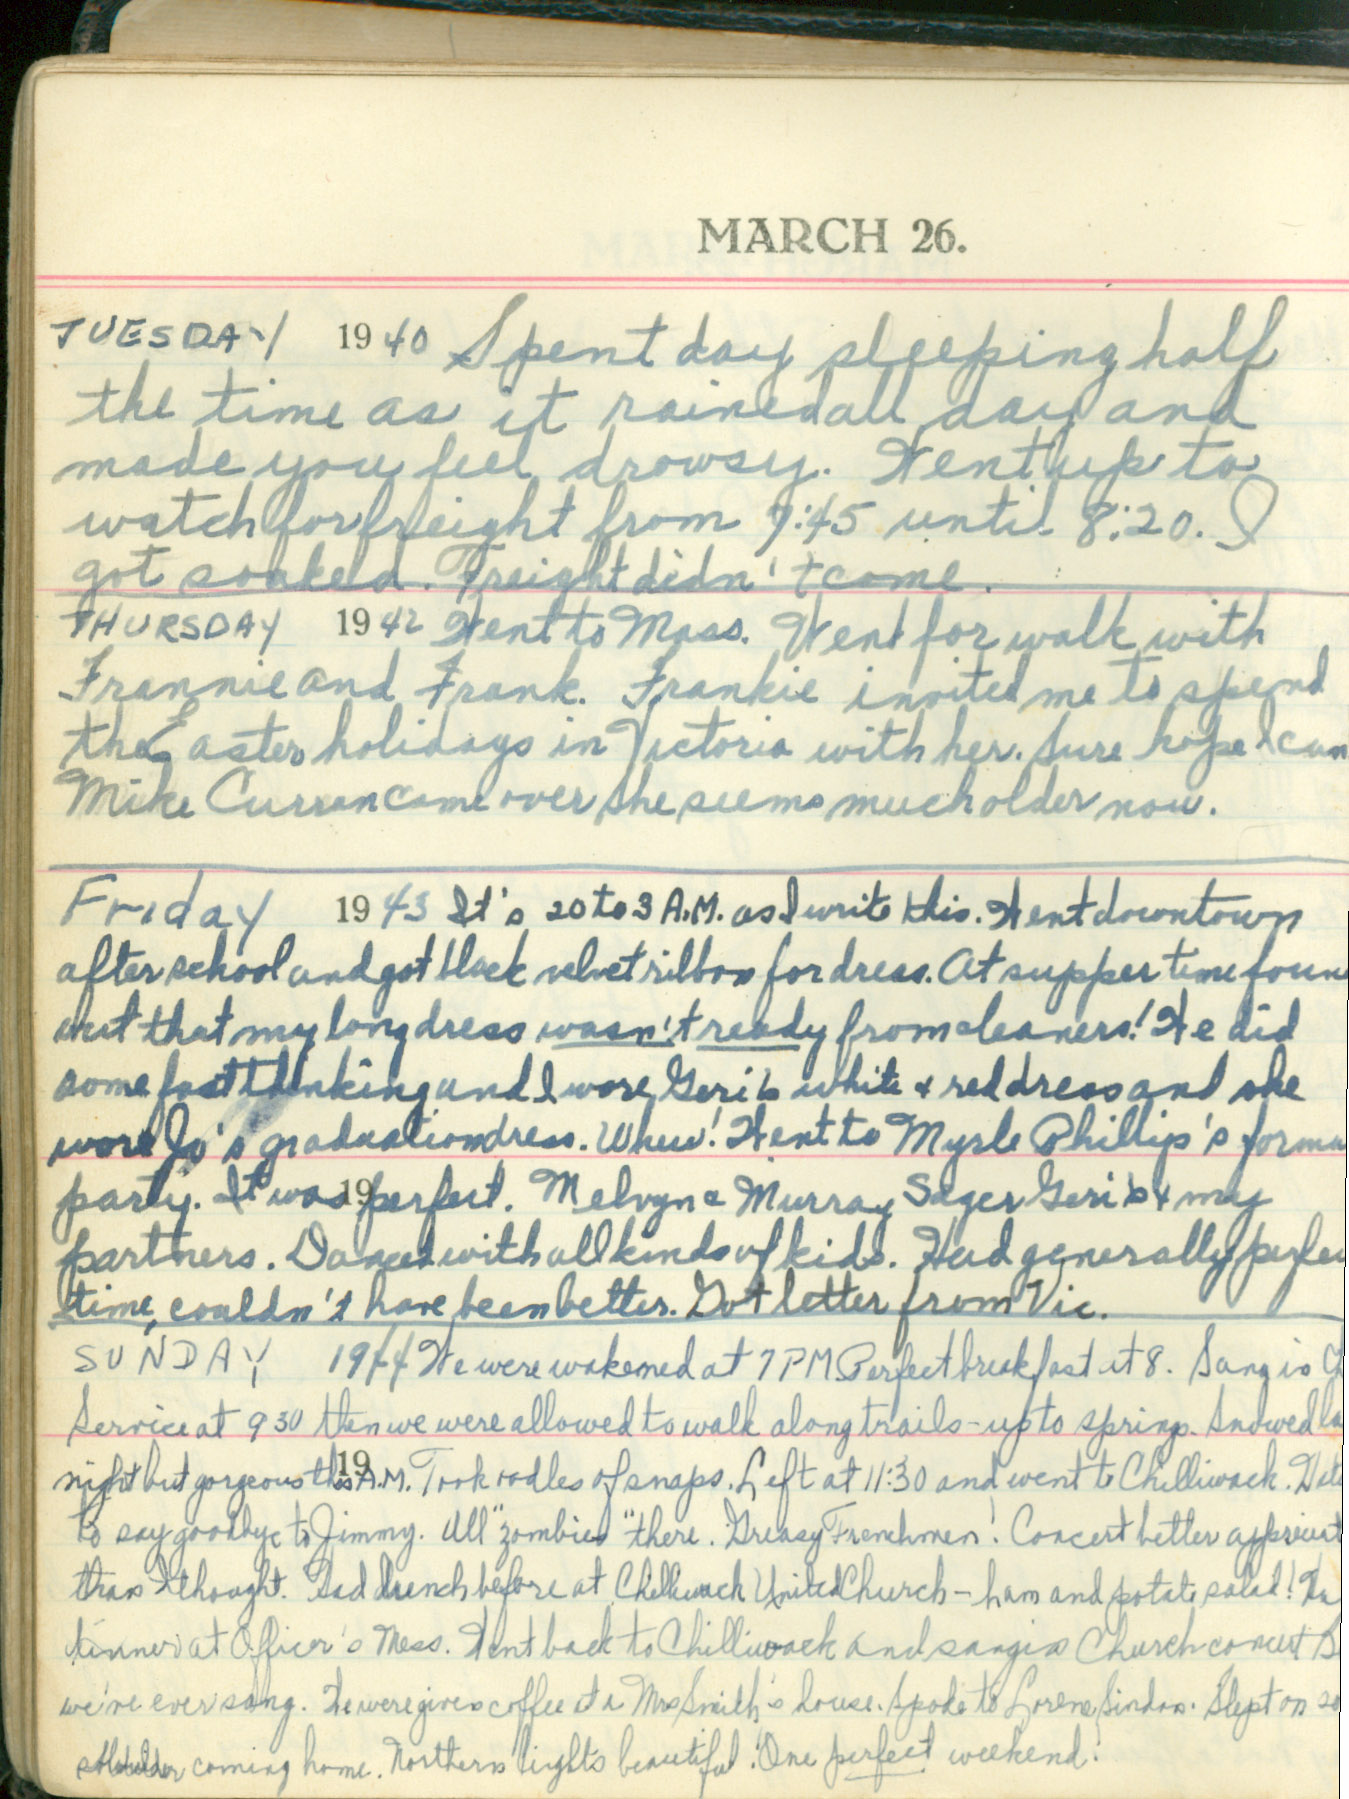 MARCH 26.
TUESDAY 1940 Spent day sleeping half
the time as it rained all day and
made you feel drowsy. Went up to
watch for freight from 7:45 until 8:20. I
got soaked. Freight didn't come.
THURSDAY 1942 Went to Mass. Went for walk with
Frannie and Frank. Frankie invited me to spend
the Easter holidays in Victoria with her. Sure hope I can
Mike Curran came over she seems much older now.
Friday 1943 It's 20 to 3 A.M. as I write this. Went downtown
after school and got black velvet ribbon for dress. At supper time foun
out that my long dress wasn't ready from cleaners! We did
some fast thinking and I wore Geri's white & red dress and she
wore Jo's graduation dress. Whew! Went to Myrle Phillip's forma
19
party. It was perfect. Melvyn & Murray Sager Geri's & my
partners. Danced with all kinds of kids. Had generally perfec
time, couldn't have been better. Got letter from Vic.
SUNDAY 1944 We were wakened at 7 PM Perfect breakfast at 8. Sang in
Service at 9 30 then we were allowed to walk along trails - up to spring. Snowed la
19
night but gorgeous this A.M. Took oodles of snaps. Left at 11:30 and went to Chilliwack.
to say goodbye to Jimmy. All "zombies" there. Greasy Frenchmen! Concert better appreciat
than I thought. Had lunch before at Chilliwack United Church - ham and potato salad!
dinner at Officer's Mess. Went back to Chilliwack and sang in Church concert B
we've ever sang. We were given coffee at a Mrs Smith's house. Spoke to Lorene. Slept on so
shoulder coming home. Northern lights beautiful! One perfect weekend!